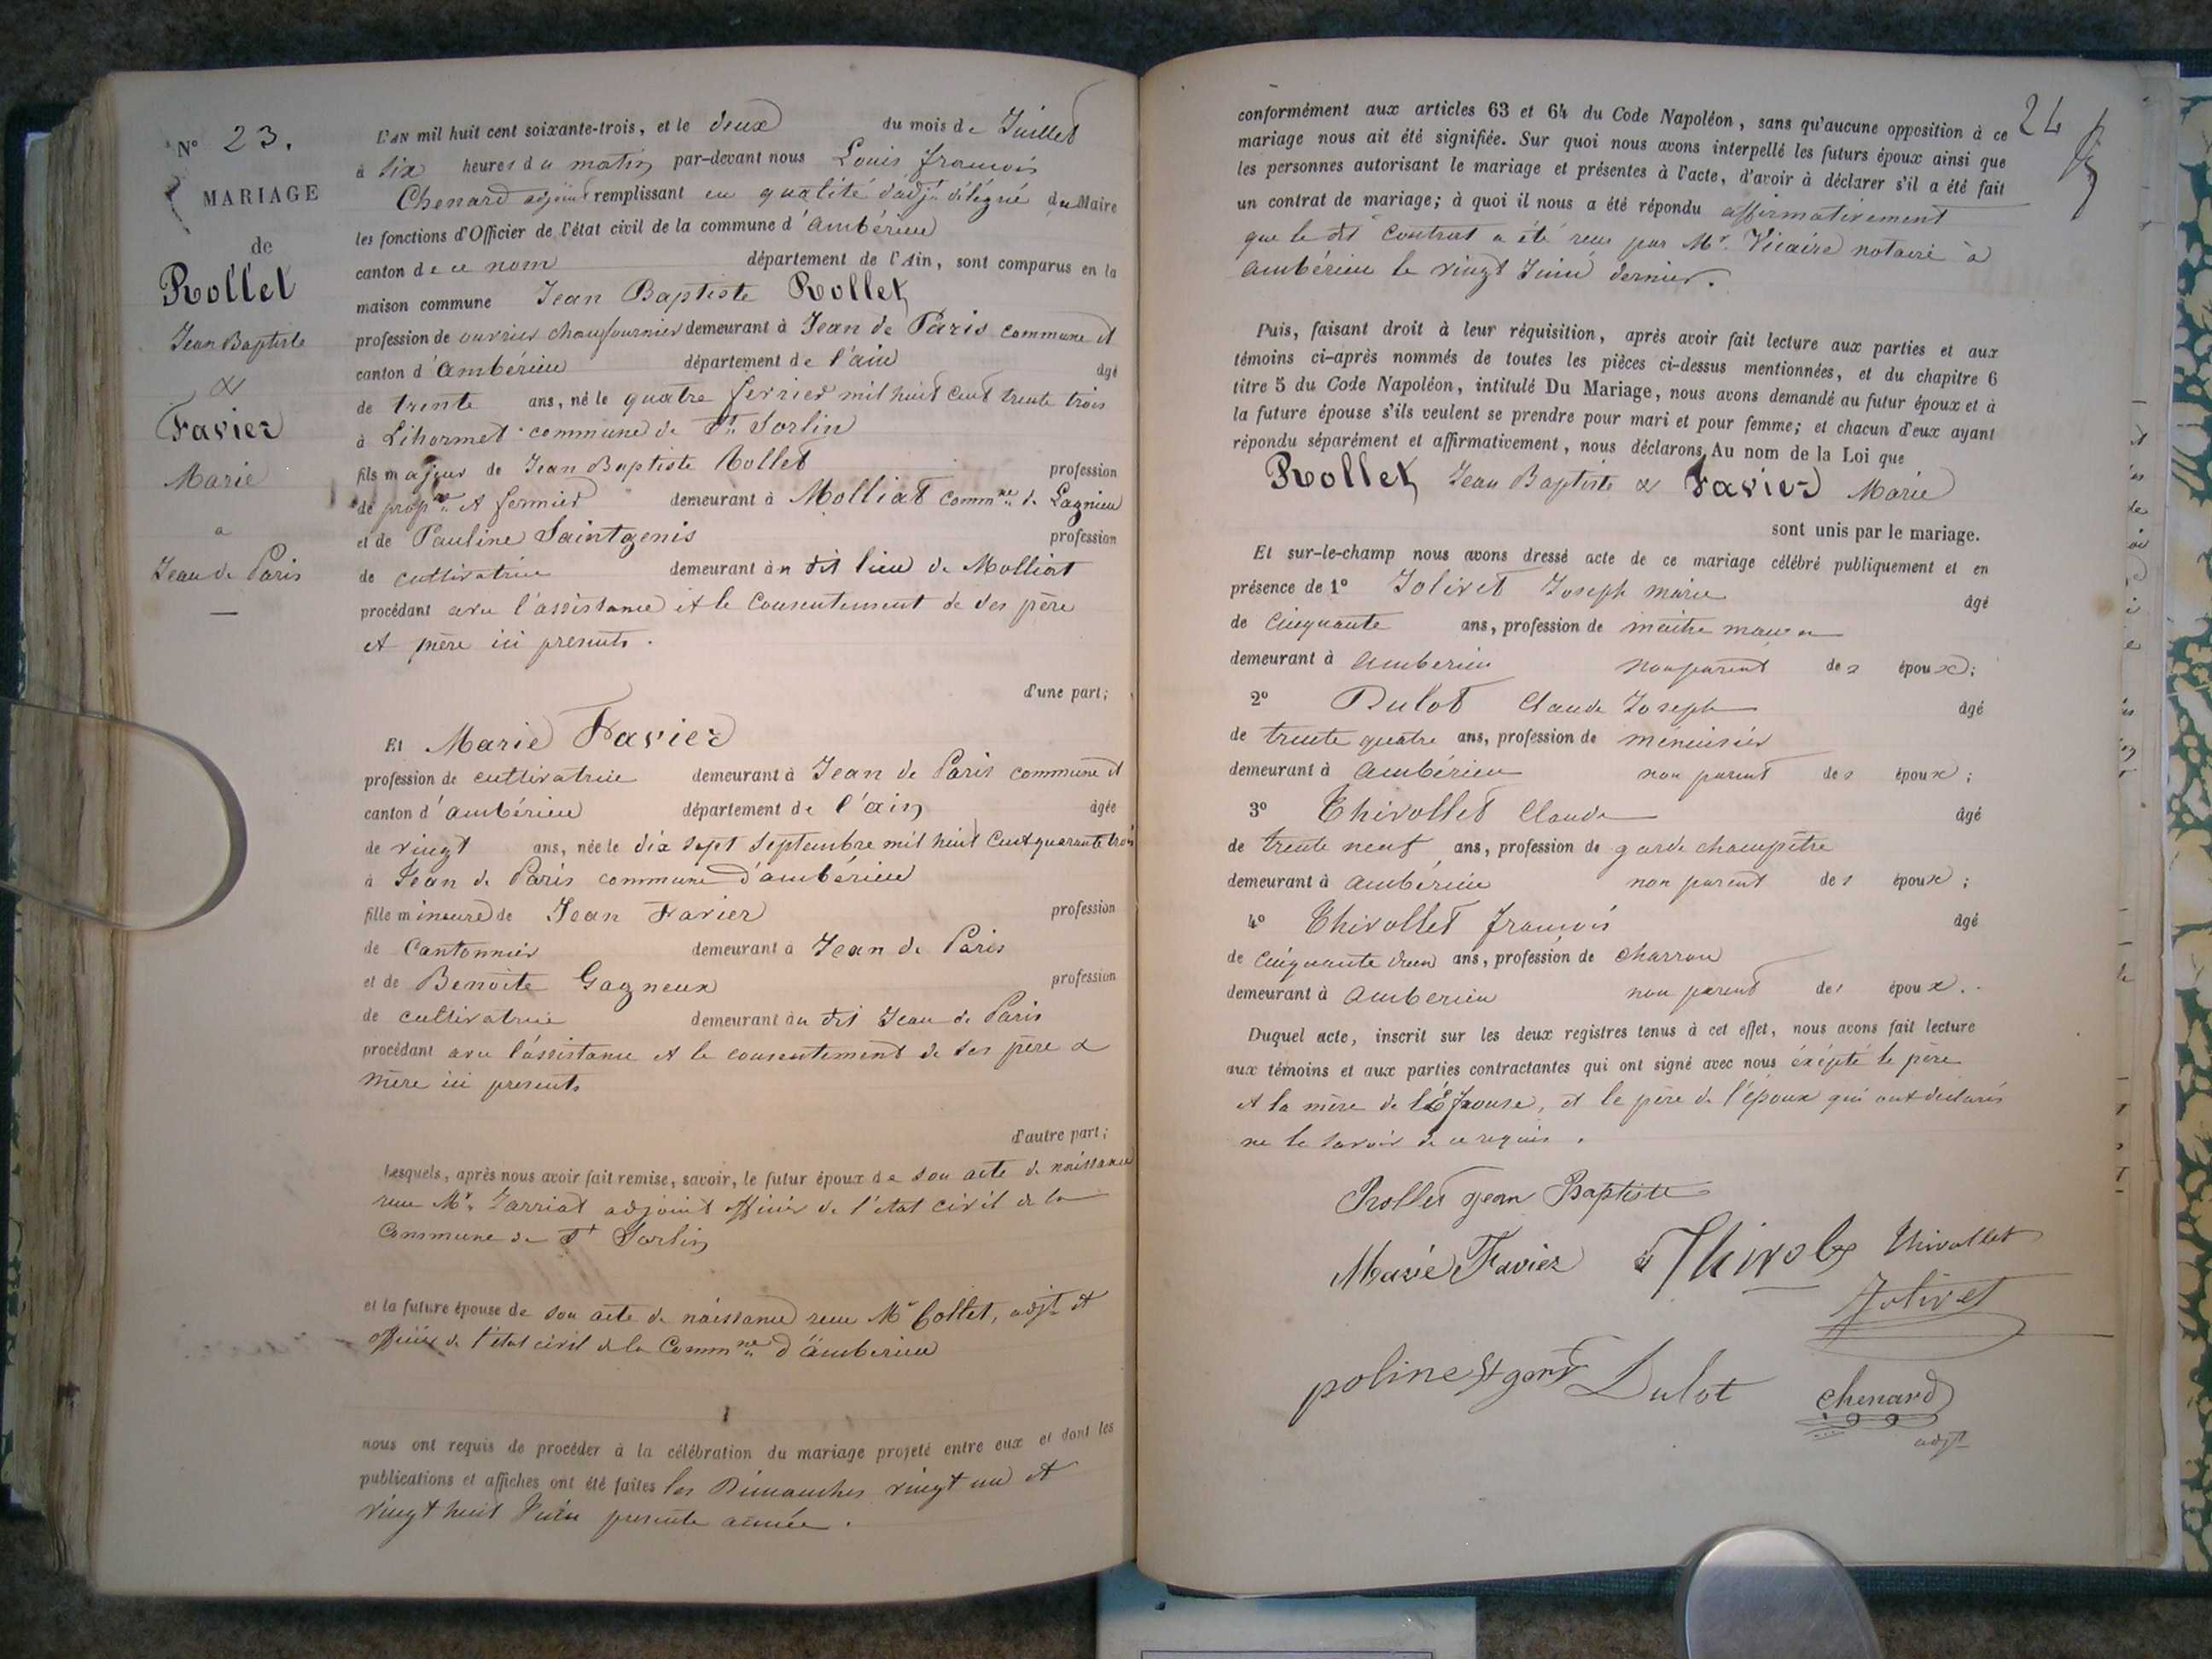 N° 23.
MARIAGE
de
Rollet
Jean Baptiste
&
Favier
Marie
a
Jean de Paris
L'AN mil huit cent soixante-trois, et le deux du mois de Juillet
à six heures du matin par-devant nous Louis françois
Chenard adjoint remplissant en qualité d'adjt délégué du Maire
les fonctions d'Officier de l'état civil de la commune d'ambérieu
canton de ce nom département de l'Ain, sont comparus en la
maison commune Jean Baptiste Rollet
profession de ouvrier chaufournier demeurant à Jean de Paris commune et
canton d'ambérieu département de l'ain âgé
de trente ans, né le quatre fevrier mil huit cent trente trois
à Lihormet commune de St Sorlin
fils majeur de Jean Baptiste Rollet profession
de propre et fermier demeurant à Molliat commne de Lagnieu
et de Pauline Saintgenis profession
de cultivatrice demeurant au dit lieu de Molliat
procédant avec l'assistance et le consentement de ses père
et mère ici presents.
d'une part;
Et Marie Favier
profession de cultivatrice demeurant à Jean de Paris commune et
canton d'ambérieu département de l'ain âgée
de vingt ans, née le dix sept septembre mil huit cent quarante trois
à Jean de Paris commune d'ambérieu
fille mineure de Jean Favier profession
de Cantonnier demeurant à Jean de Paris
et de Benoite Gagneux profession
de cultivatrice demeurant au dit Jean de Paris
procédant avec l'assistance et le consentement de ses père &
mère ici presents
d'autre part;
Lesquels, après nous avoir fait remise, savoir, le futur époux de son acte de naissance
reçu Mr Jarriat adjoint officier de l'état civil de la
Commune de St Sorlin
et la future épouse de son acte de naissance reçu Mr Collet, adjt et
officier de l'état civil de la Commne d'ambérieu
nous ont requis de procéder à la célébration du mariage projeté entre eux et dont les
publications et affiches ont été faites les Dimanches vingt un et
vingt huit Juin presente année.
24
conformément aux articles 63 et 64 du Code Napoléon, sans qu'aucune opposition à ce
mariage nous ait été signifiée. Sur quoi nous avons interpellé les futurs époux ainsi que
les personnes autorisant le mariage et présentes à l'acte, d'avoir à déclarer s'il a été fait
un contrat de mariage; à quoi il nous a été répondu affirmativement
que le dit contrat a été reçu par Mr. Vicaire notaire à
ambérieu le vingt Juin dernier.
Puis, faisant droit à leur réquisition, après avoir fait lecture aux parties et aux
témoins ci-après nommés de toutes les pièces ci-dessus mentionnées, et du chapitre 6
titre 5 du Code Napoléon, intitulé Du Mariage, nous avons demandé au futur époux et à
la future épouse s'ils veulent se prendre pour mari et pour femme; et chacun d'eux ayant
répondu séparément et affirmativement, nous déclarons Au nom de la Loi que
Rollet Jean Baptiste & Favier Marie
sont unis par le mariage.
Et sur-le-champ nous avons dressé acte de ce mariage célébré publiquement et en
présence de 1° Jolivet Joseph marie âgé
de Cinquante ans, profession de maitre maçon
demeurant à ambérieu non parent des époux;
2° Dulot Claude Joseph âgé
de trente quatre ans, profession de menuisier
demeurant à ambérieu non parent des époux;
3° Thivollet Claude âgé
de trente neuf ans, profession de garde champêtre
demeurant à ambérieu non parent des époux;
4° Thivollet françois âgé
de Cinquante deux ans, profession de charron
demeurant à ambérieu non parent des époux.
Duquel acte, inscrit sur les deux registres tenus à cet effet, nous avons fait lecture
aux témoins et aux parties contractantes qui ont signé avec nous éxépté le père
et la mère de l'Épouse, et le père de l'époux qui ont déclarés
ne le savoir de ce requis.
Rollet jean Baptiste
Marie Favier Thivolet Thivollet
Jolivet
poline St geni Dulot chenard
adjt